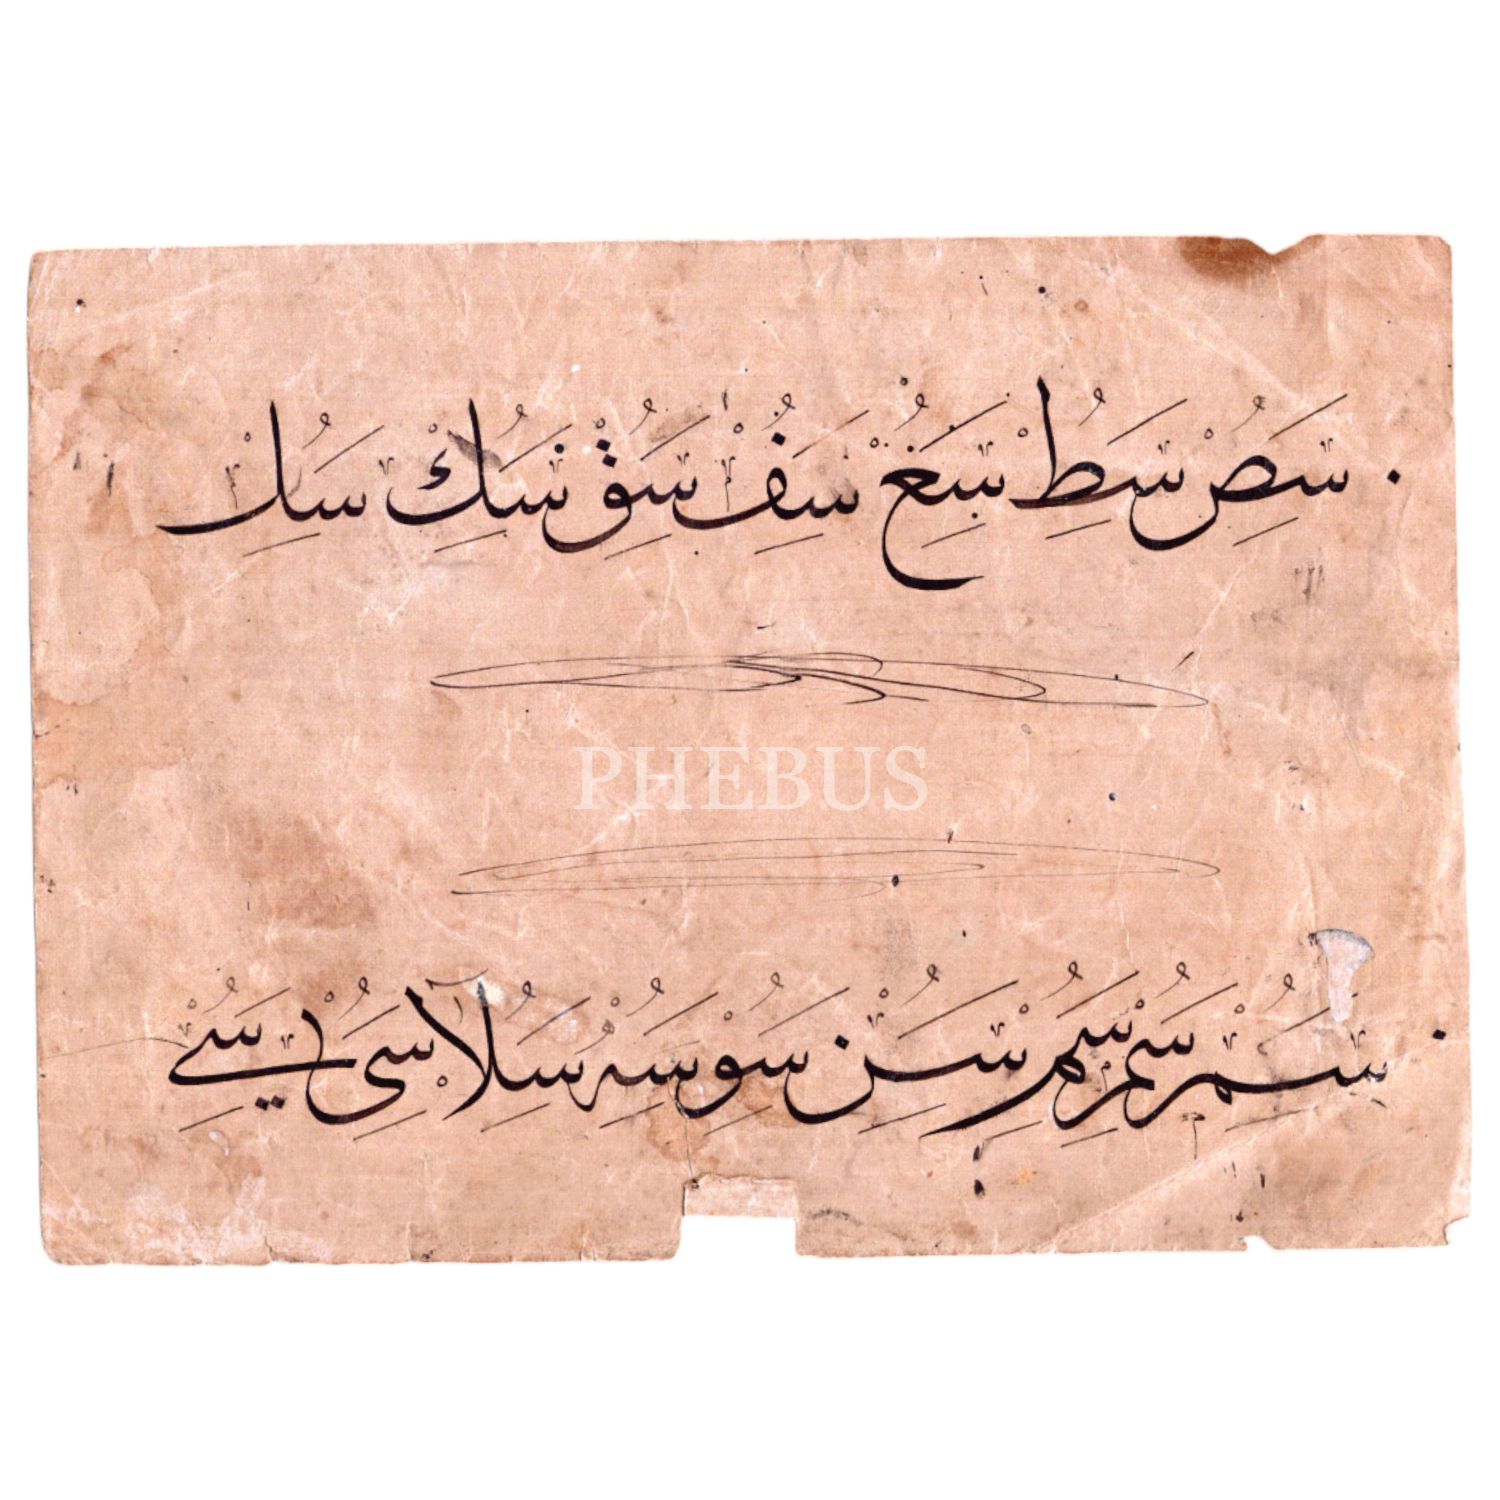 سَصِْ سَطُِْ سَِغُْ سَفُِْ سَِقُْ سَكُِْ سَلُِْ
PHEBUS
سَمُِْ سَمُِْ سَمُِْ سَنُِْ سَوُِْ سَهُِْ سَُِلَا سَىُِْ سَےُِْ